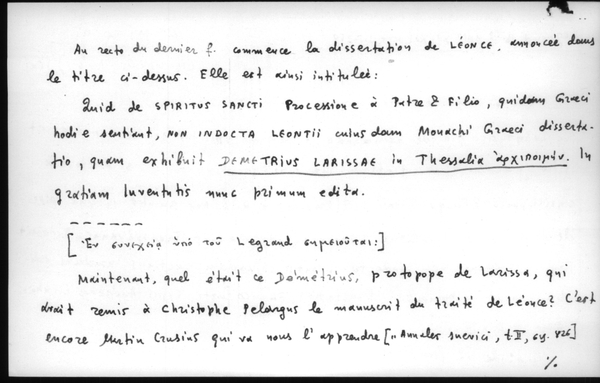 Au recto du dernier f. commence la dissertation de LÉONCE, annoncée dans
le titre ci-dessus. Elle est ainsi intitulée:
Quid de SPIRITUS SANCTI Processione à Patre & Filio, quidam Graeci
hodie sentiant, NON INDOCTA LEONTII cuiusdam Monachi Graeci disserta-
tio, quam exhibuit DEMETRIUS LARISSAE in Thessalia ἀρχιποιμήν. In
gratiam Iuventutis nunc primum edita.
[Ἐν συνεχείᾳ ὑπὸ τοῦ Legrand σημειοῦται:]
Maintenant, quel était ce Démétrius, protopope de Larissa, qui
avait remis à Christophe Pelargus le manuscrit du traité de Léonce? C'est
encore Martin Crusius qui va nous l'apprendre [„Annales suevici, t. II, σελ. 826]
%